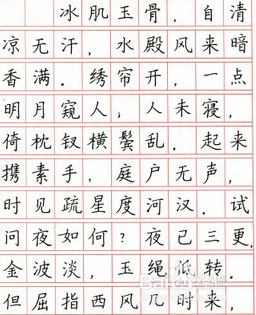 冰肌玉骨，自清
凉无汗，水殿风来暗
香满．绣帘开，一点
明月窥人，人未寝，
倚枕钗横鬓乱．起来
携素手，庭户无声，
时见疏星度河汉．试
问夜如何？夜已三更．
金波淡，玉绳低转．
但屈指西风几时来，